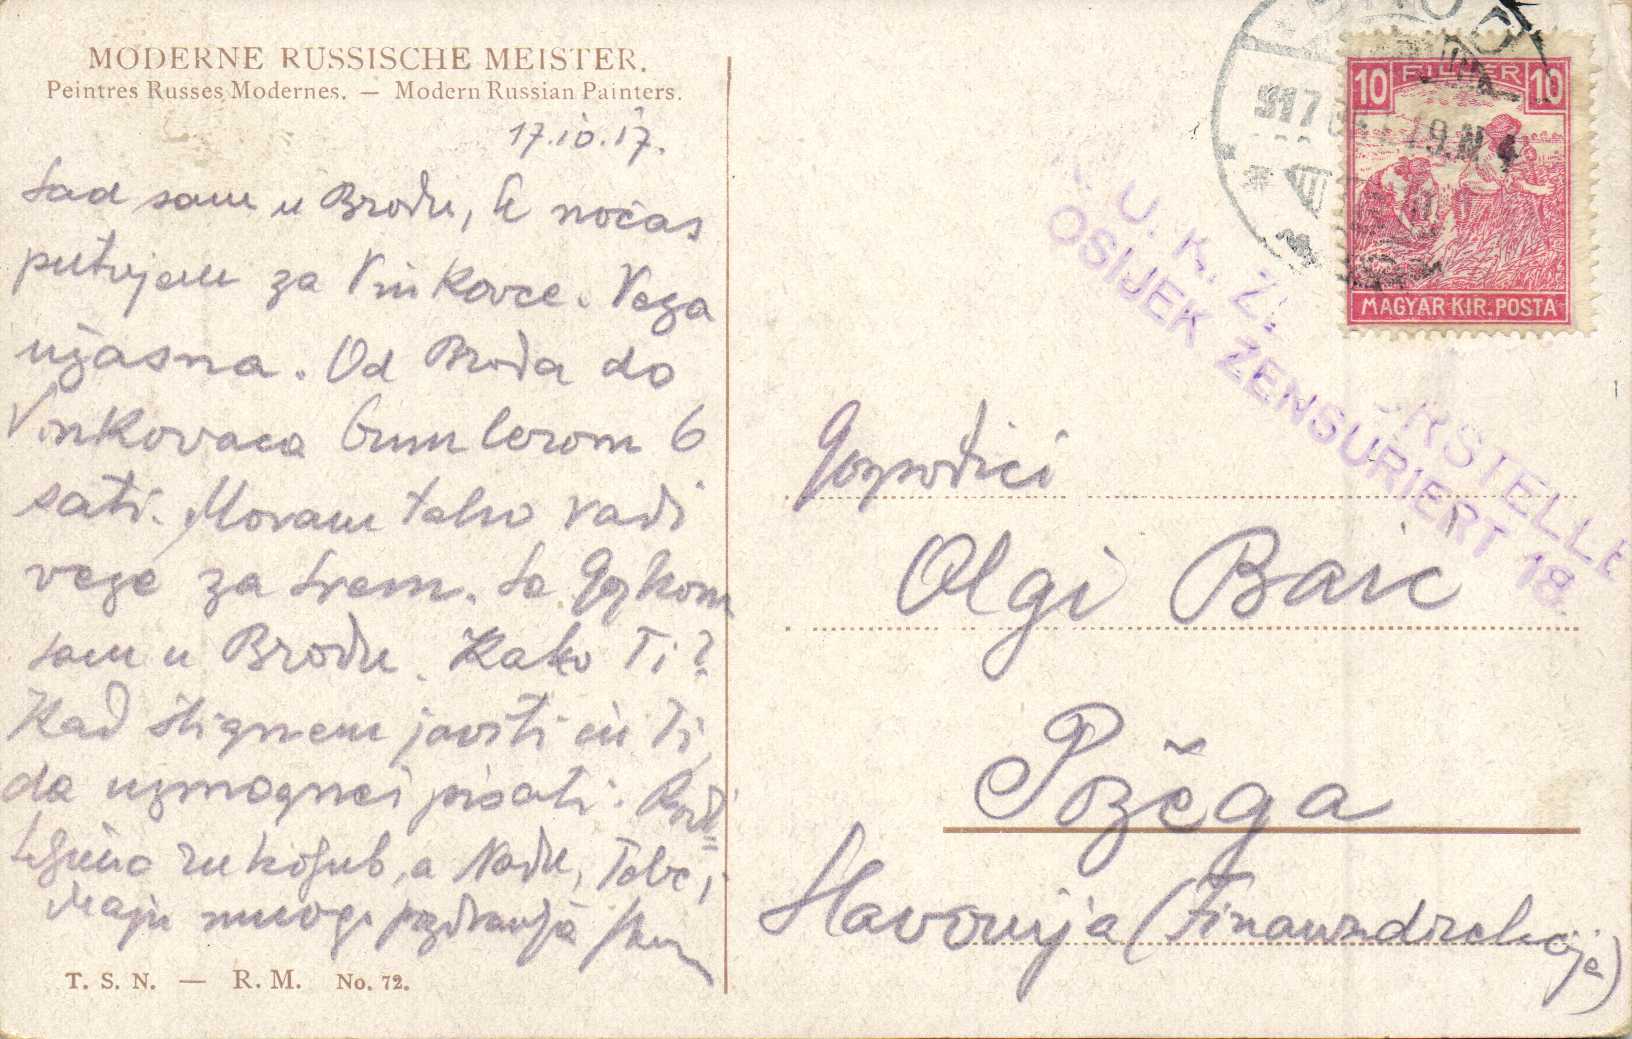 MODERNE RUSSISCHE MEISTER.
Peintres Russes Modernes. — Modern Russian Painters.
17.10.17.
Sad sam u Brodu, te noćas
putujem za Vinkovce. Veza
užasna. Od Broda do
Vinkovaca čitavom 6
sati. Moram tako radi
veze za Srem. Sa Gojkom
sam u Brodu. Kako Ti?
Kad stignem javiti ću Ti,
da uzmogneš pisati. Rodi=
teljima rukoljub, a Nadu, Tebe i
Maju mnogo pozdravlja
T. S. N. — R. M. No. 72.
BROD
917
10 FILLÉR 10
MAGYAR KIR. POSTA
K. U. K. ZENSURSTELLE
OSIJEK ZENSURIERT 18
Gospodici
Olgi Baić
Požega
Slavonija (Finanzdirekcije)